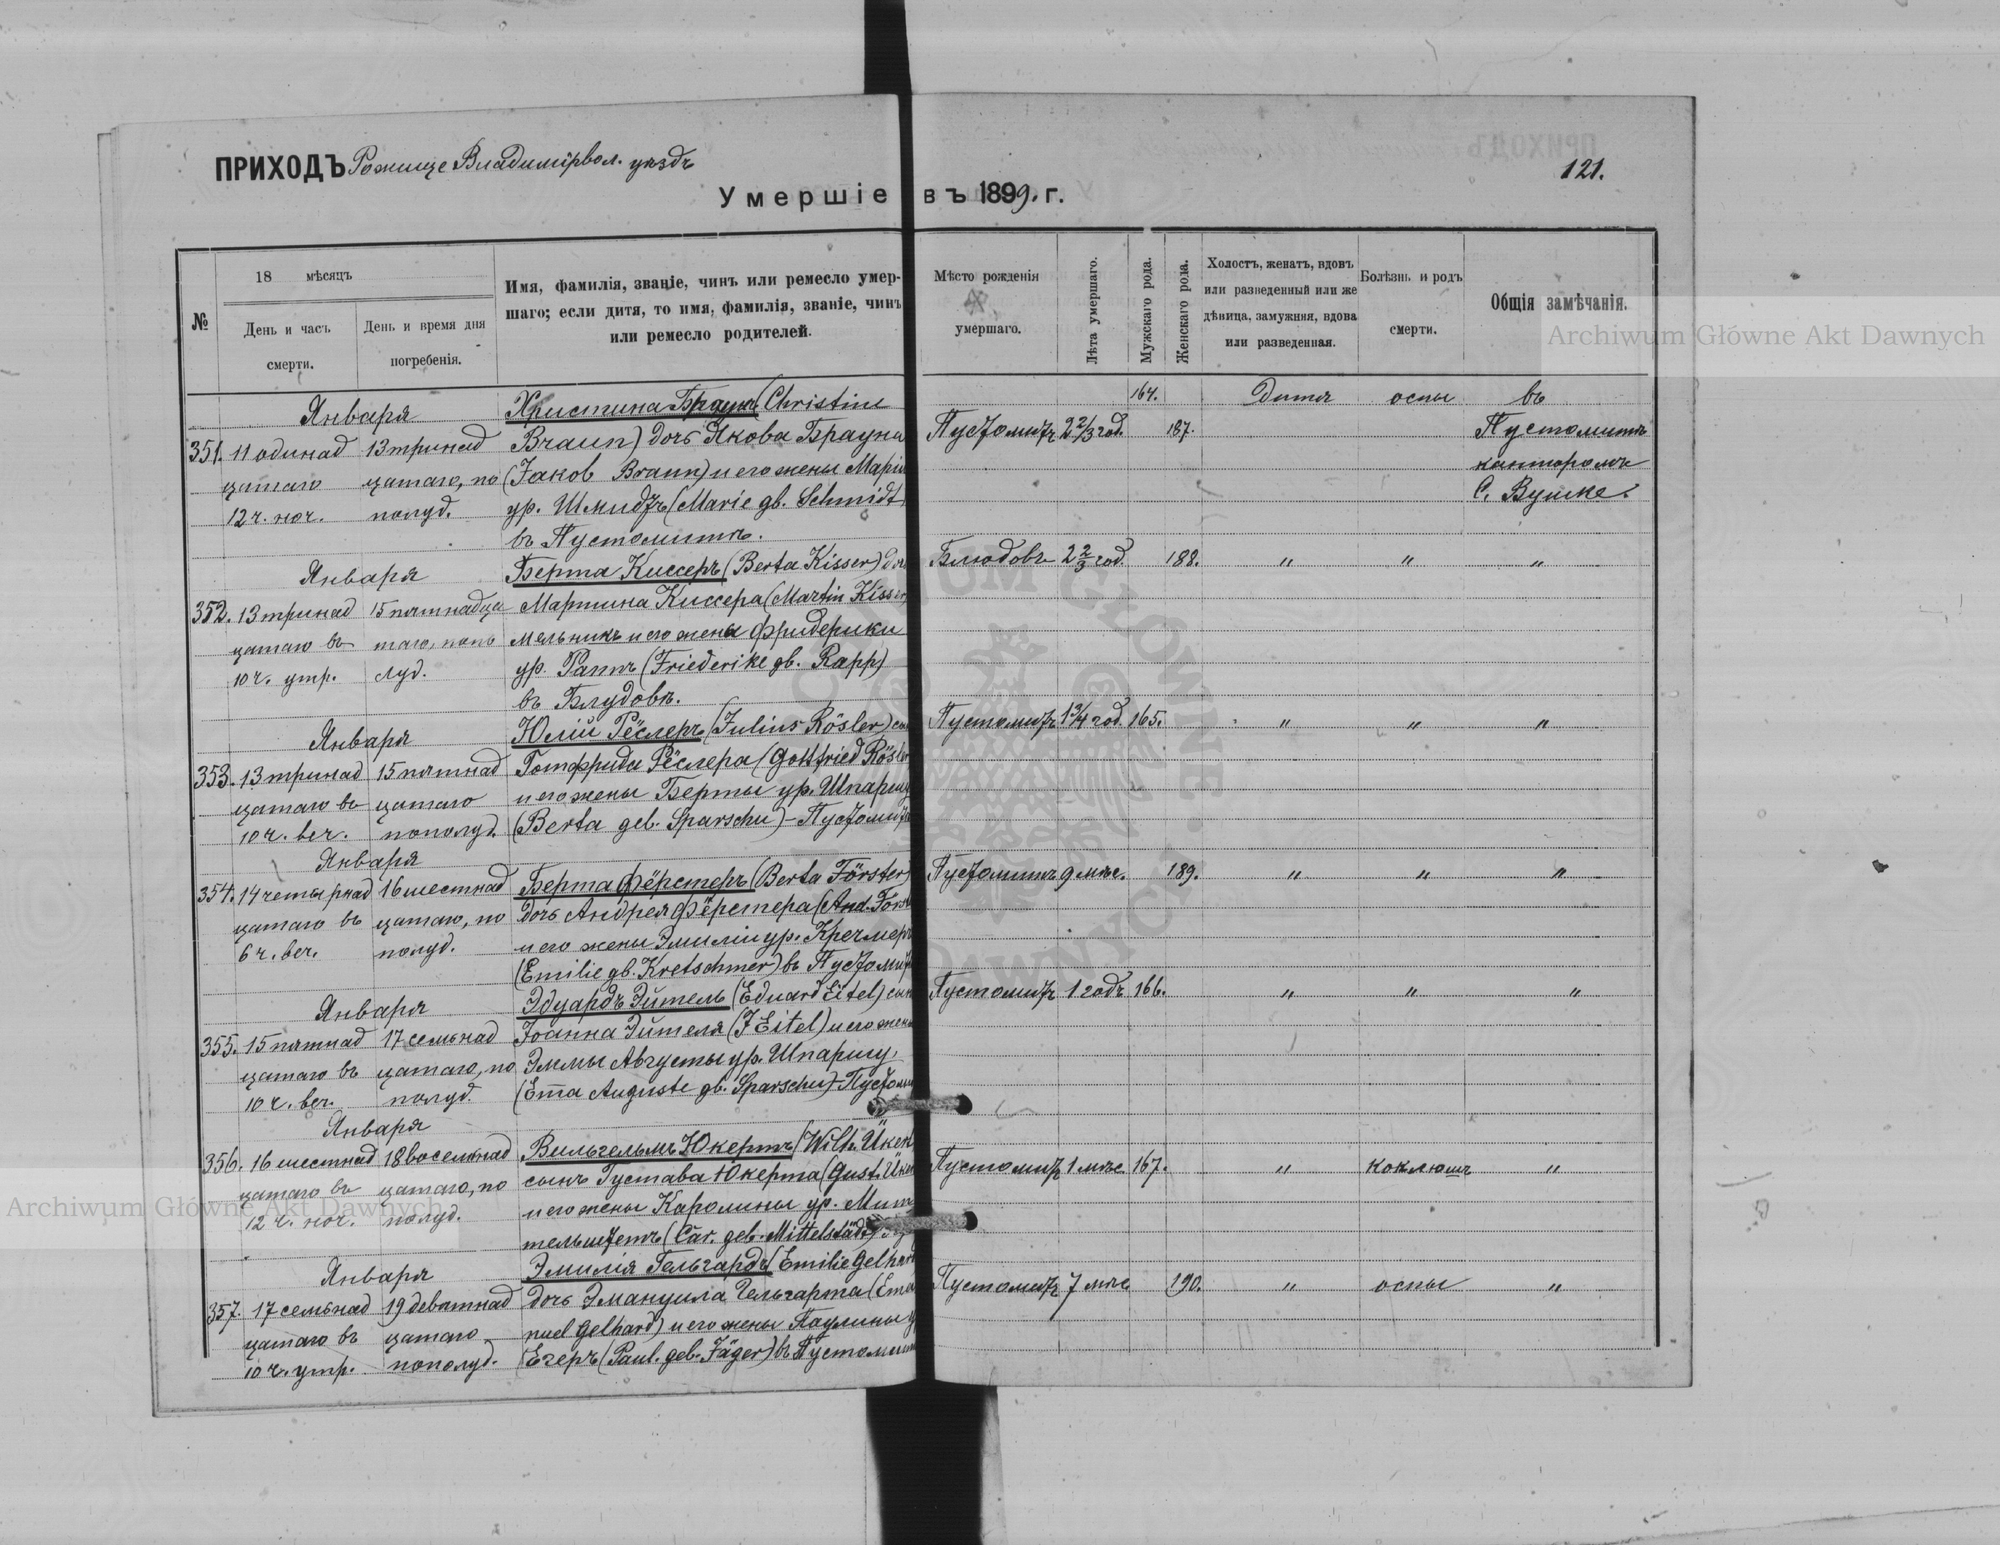 ПРИХОДЪ Рожище Владимірвол. уѣздъ
121.
Умершіе въ 1899. г.
№
18 мѣсяцъ
День и часъ смерти.
День и время дня погребенія.
Имя, фамилія, званіе, чинъ или ремесло умер-
шаго; если дитя, то имя, фамилія, званіе, чинъ
или ремесло родителей.
Мѣсто рожденія
умершаго.
Лѣта умершаго.
Мужскаго рода.
Женскаго рода.
Холостъ, женатъ, вдовъ
или разведенный или же
дѣвица, замужняя, вдова
или разведенная.
Болѣзнь и родъ
смерти.
Общія замѣчанія.
Archiwum Główne Akt Dawnych
Января Христина Браунъ (Christine 164. Дитя оспы въ
351. 11 одинад 13 тринад Braun) дочь Якова Брауна Пустомитъ 2 2/3 год. 187. Пустомитѣ
цатаго цатаго, по (Jakob Braun) и его жены Маріи канторомъ
12 ч. ноч. полуд. ур. Шмидтъ (Marie gb. Schmidt С. Вушке.
въ Пустомитѣ.
Января Берта Киссеръ (Berta Kisser) Блюдовъ 2 2/3 год. 188. " " "
352. 13 тринад 15 пятнадца Мартина Киссера (Martin Kisser
цатаго въ таго, попо мельникъ и его жены Фридерики
10 ч. утр. луд. ур. Раппъ (Friederike gb. Rapp)
въ Блудовѣ.
Января Юлій Рёслеръ (Julius Rösler) Пустомитъ 1 3/4 год. 165. " " "
353. 13 тринад 15 пятнад Готфрида Рёслера (Gottfried Rösler
цатаго въ цатаго и его жены Берты ур. Шпаршу
10 ч. веч. пополуд. (Berta geb. Sparschu) - Пустомит
Января
354. 14 четырнад 16 шестнад Берта Фёрстеръ (Berta Förster) Пустомитъ 9 мѣс. 189. " " "
цатаго въ цатаго, по дочь Андрея Фёрстера (And. Först
6 ч. веч. полуд. и его жены Эмиліи ур. Кречмеръ
(Emilie gb. Kretschmer) въ Пустомит
Января Эдуардъ Эйтель (Eduard Eitel) сын Пустомитъ 1 годъ 166. " " "
355. 15 пятнад 17 семьнад Іоанна Эйтеля (J Eitel) и его жен
цатаго въ цатаго, по Эммы Августы ур. Шпаршу,
10 ч. веч. полуд. (Em̅a Auguste gb. Sparschu) - Пустоми
Января
356. 16 шестнад 18 восемьнад Вильгельмъ Юкертъ (Wilh. Üker Пустомитъ 1 мѣс 167. " коклюшъ "
цатаго въ цатаго, по сынъ Густава Юкерта (Gust. Üke
12 ч. ноч. полуд. и его жены Каролины ур. Мит
тельштетъ (Car. geb. Mittelstädt)
Января Эмилія Гельгардъ (Emilie Gelhard
357. 17 семьнад 19 девятнад дочь Эмануила Гельгарта (Ema Пустомитъ 7 мѣс 190. " оспы "
цатаго въ цатаго nuel Gelhard) и его жены Паулины у
10 ч. утр. пополуд. Егеръ (Paul. geb. Jäger) въ Пустомит
Archiwum Główne Akt Dawnych